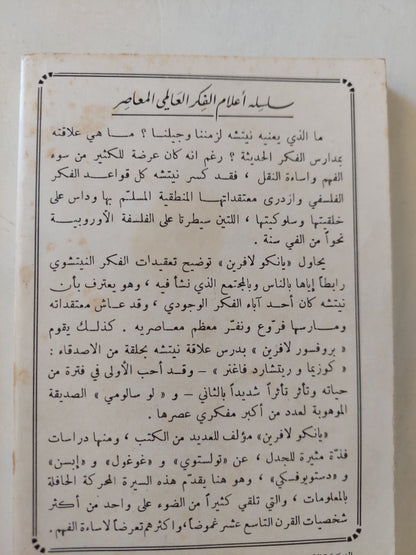 سلسلة أعلام الفكر العالمي المعاصر
ما الذي يعنيه نيتشه لزمننا وجيلنا ؟ ما هي علاقته
بمدارس الفكر الحديثة ؟ رغم انه كان عرضة للكثير من سوء
الفهم واساءة النقل ، فقد كسر نيتشه كل قواعد الفكر
الفلسفي وازدرى معتقداتها المنطقية المسلتم بها وداس على
خلقيتها وسلوكيتها ، اللتين سيطرتا على الفلسفة الأوروبية
نحواً من الفي سنة .
يحاول «يانكو لافرين» توضيح تعقيدات الفكر النيتشوي
رابطاً إياها بالناس وبالمجتمع الذي نشأ فيه ، وهو يعترف بأن
نيتشه كان أحد آباء الفكر الوجودي ، وقد عاش معتقداته
ومارسها فروّع ونفّر معظم معاصريه . كذلك يقوم
« بروفسور لافرين» بدرس علاقة نيتشه بحلقة من الاصدقاء :
« كوزيما و ريتشارد فاغنر » – وقد أحب الأولى في فترة من
حياته وتأثر تأثراً شديداً بالثاني – و « لو سالومي » الصديقة
الموهوبة لعدد من أكبر مفكري عصرها .
«يانكو لافرين» مؤلف للعديد من الكتب ، ومنها دراسات
فذّة مثيرة للجدل ، عن «تولستوي» و «غوغول» و «إبسن»
و «دستويوفسكي» ، وهو هنا يقدّم هذه السيرة المحركة الحافلة
بالمعلومات ، والتي تلقي كثيراً من الضوء على واحد من أكثر
شخصيات القرن التاسع عشر غموضاً، واكثرهم تعرضاً لاساءة الفهم .